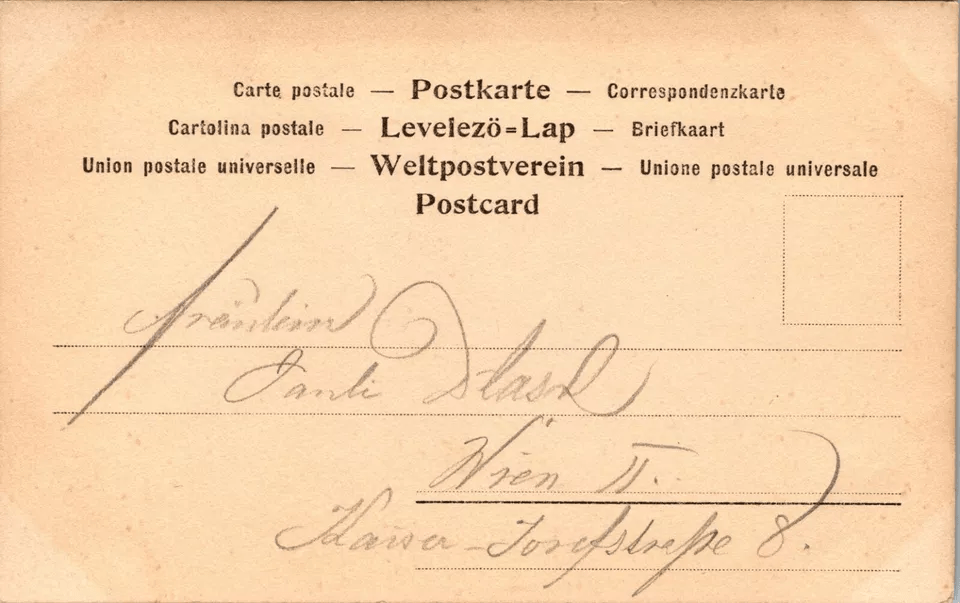 Carte postale — Postkarte — Correspondenzkarte
Cartolina postale — Levelező=Lap — Briefkaart
Union postale universelle — Weltpostverein — Unione postale universale
Postcard
Fräulein
Wien II.
Kaiser-Josefstraße 8.